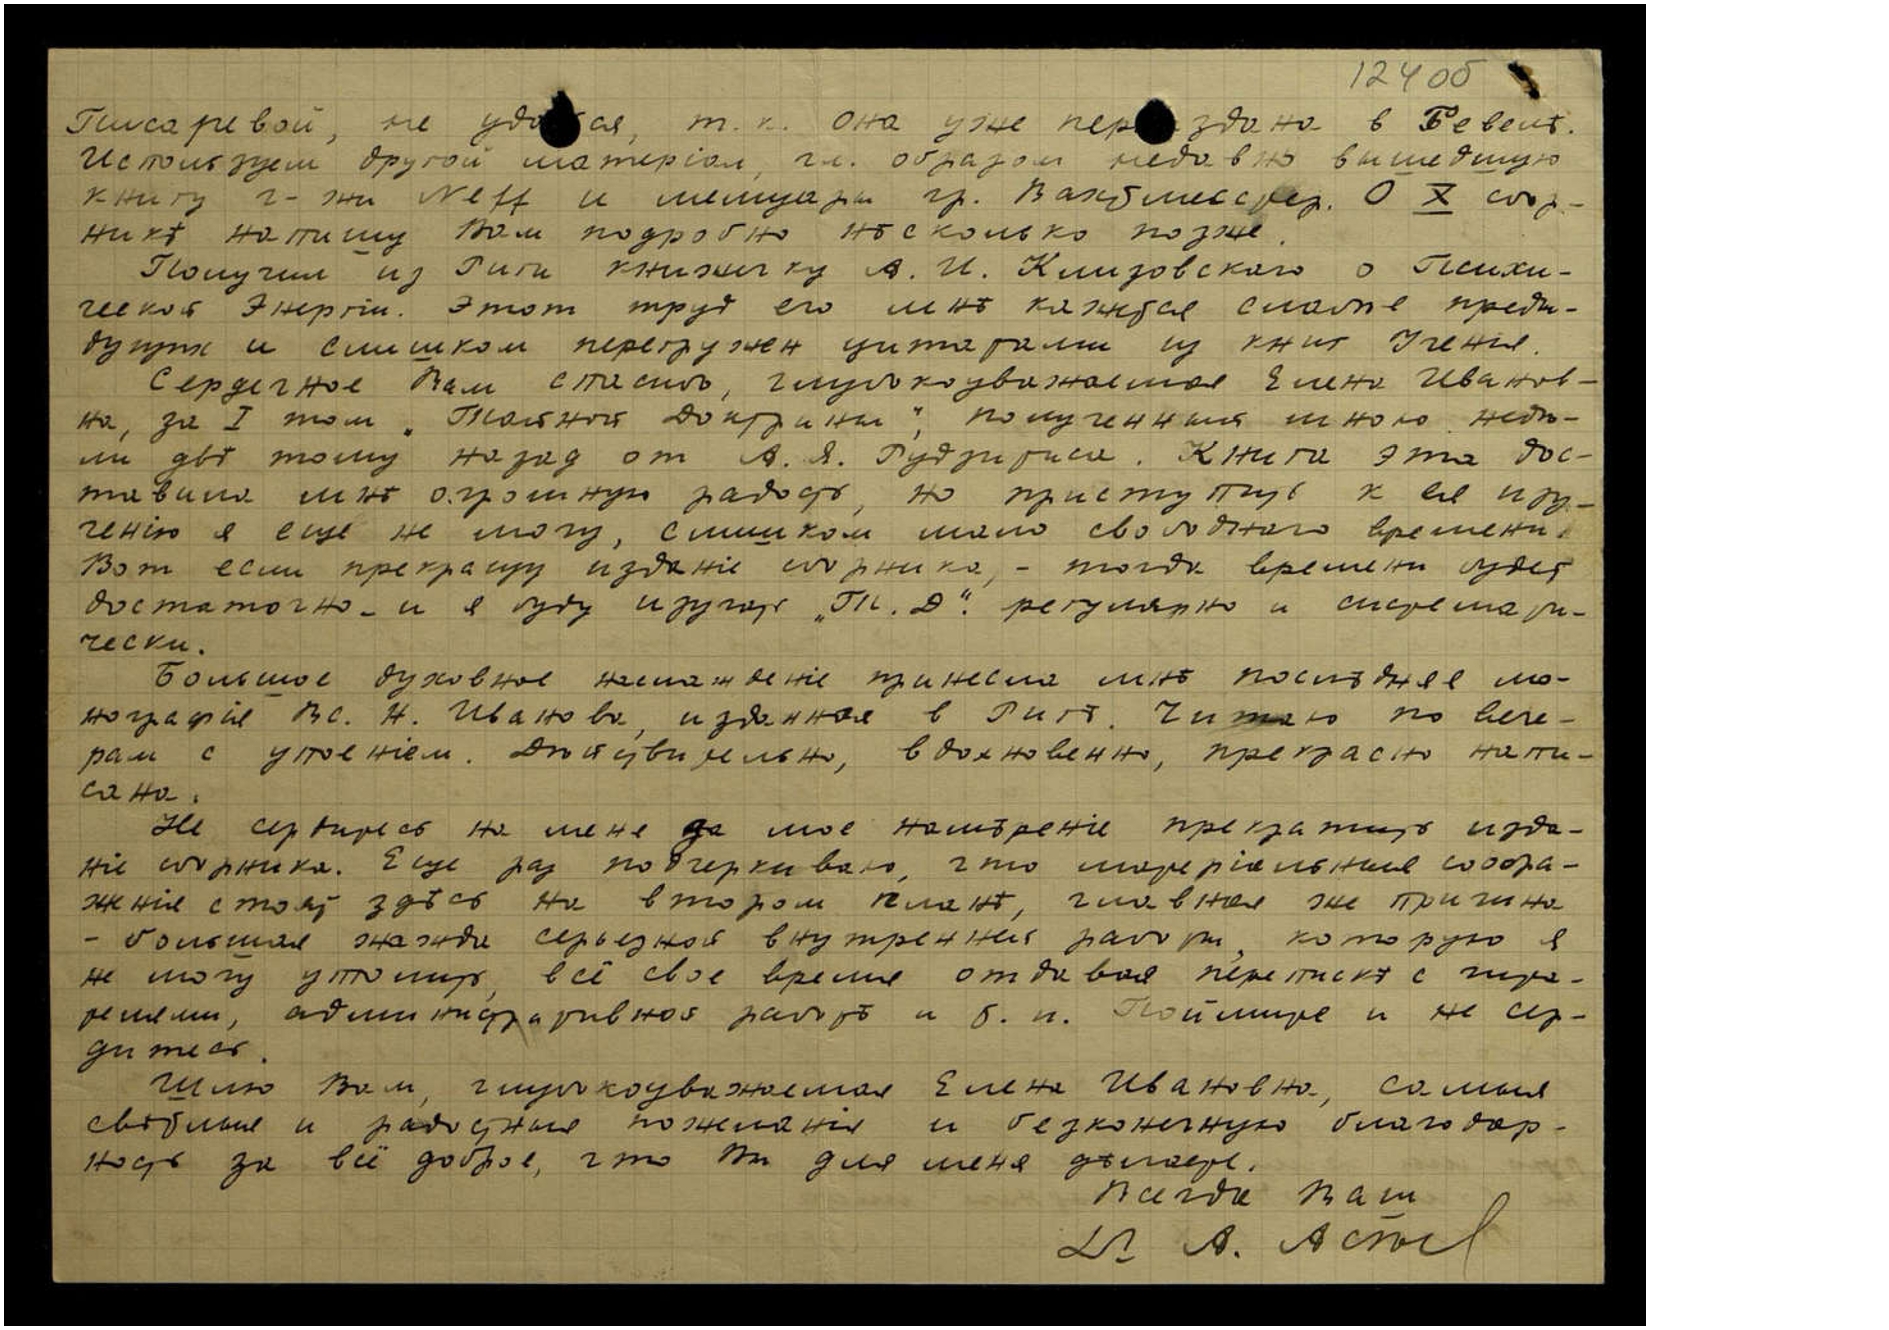 124об
Писаревой, не уда ся, т. к. она уже пер здана в Ревелѣ.
Используем другой матеріал, гл. образом недавно вышедшую
книгу г-жи Neff и мемуары гр. Вахтмейстер. О X сбор-
никѣ напишу Вам подробно нѣсколько позже.
Получил из Риги книжечку А. И. Клизовского о Психи-
ческой Энергіи. Этот труд его мнѣ кажется слабѣе преды-
дущих и слишком перегружен цитатами из книг Ученія.
Сердечное Вам спасибо, глубокоуважаемая Елена Иванов-
на, за I том „Тайной Доктрины", полученный мною недѣ-
ли двѣ тому назад от А. Я. Рудзитиса. Книга эта дос-
тавила мнѣ огромную радость, но приступить к ея изу-
ченію я еще не могу, слишком мало свободнаго времени.
Вот если прекращу изданіе сборника, - тогда времени будет
достаточно - и я буду изучать „Т. Д". регулярно и система ти-
чески.
Большое духовное наслажденіе принесла мнѣ послѣдняя мо-
нографія Вс. Н. Иванова, изданная в Ригѣ. Читаю по вече-
рам с упоеніем. Дѣйствительно, вдохновенно, прекрасно напи-
сана.
Не сердитесь на меня за мое намѣреніе прекратить изда-
ніе сборника. Еще раз подчеркиваю, что матеріальныя сообра-
женія стоят здѣсь на втором планѣ, главная же причина
- большая жажда серьезной внутренней работы, которую я
не могу утолить, всё свое время отдавая перепискѣ с чита-
телями, административной работѣ и т. п. Поймите и не сер-
дитесь.
Шлю Вам, глубокоуважаемая Елена Ивановна, самыя
свѣтлыя и радостныя пожеланія и безконечную благодар-
ность за всё доброе, что Вы для меня дѣлаете.
Всегда Ваш
Др А. Асѣев